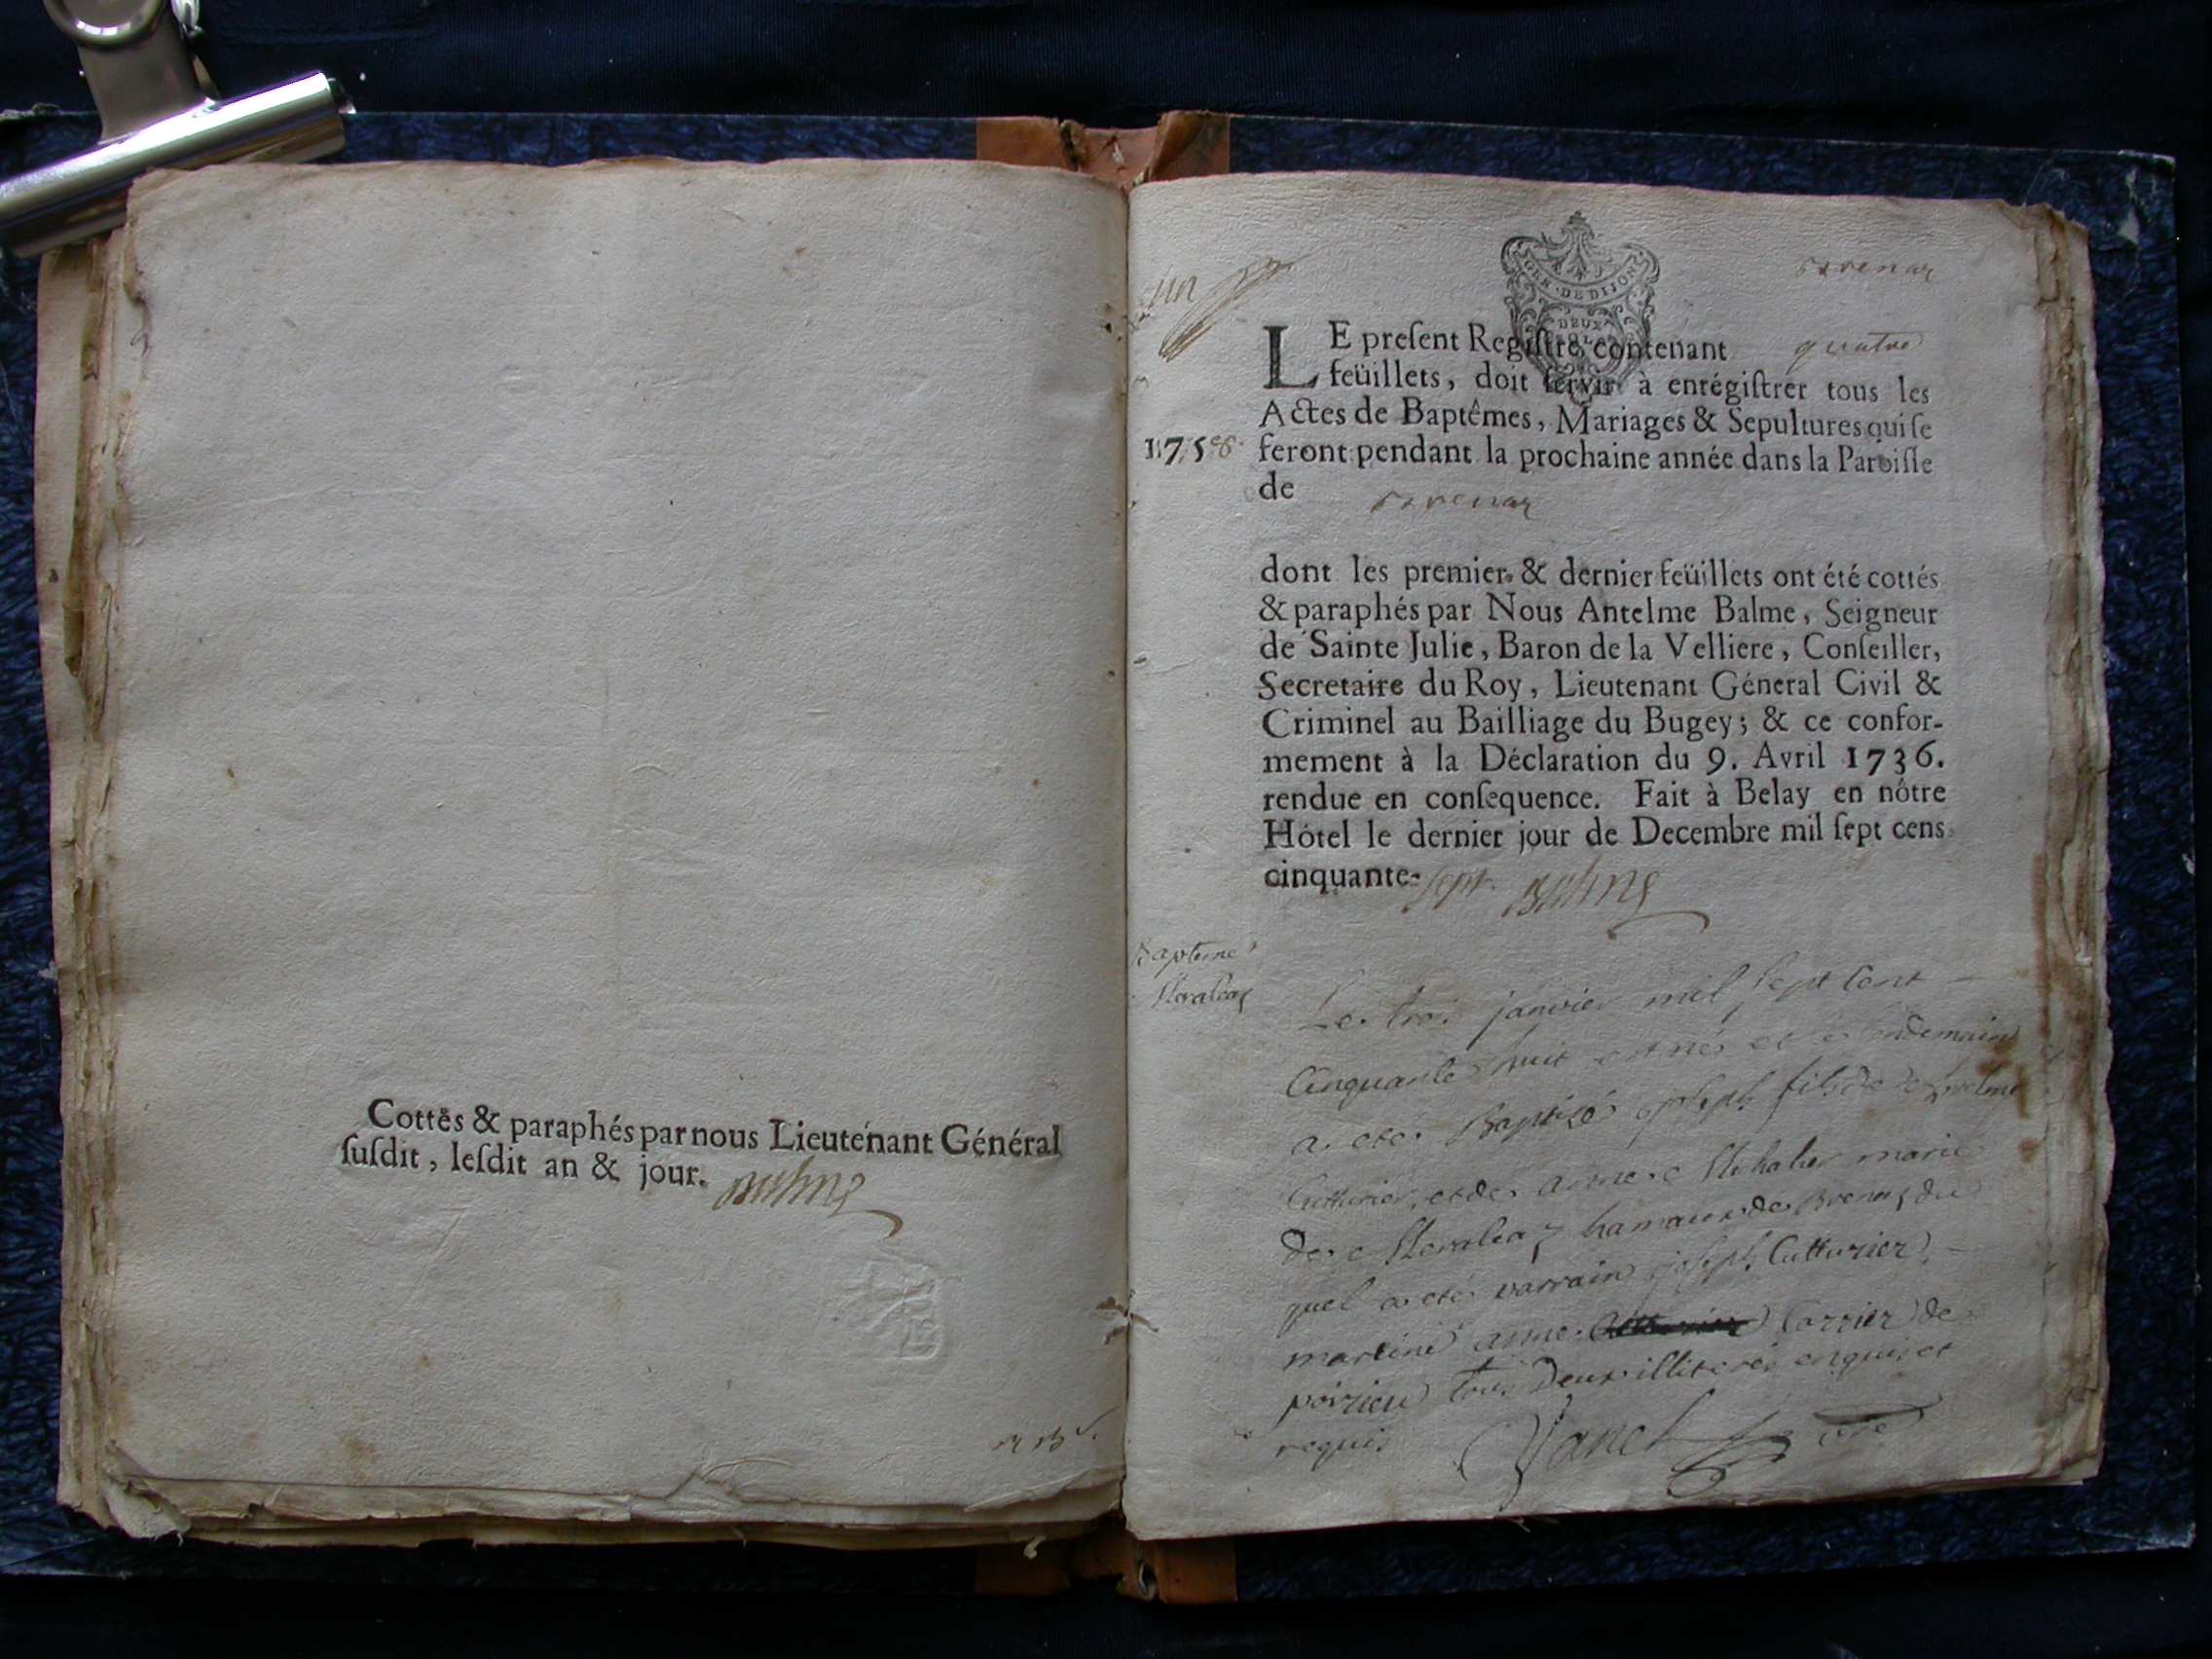 Cottés & paraphés par nous Lieutenant Général
ſuſdit, leſdit an & jour. Balme
un
GEN. DE DIJON
DEUX
brenaz
LE preſent Regiſtre, contenant quatre
feüillets, doit ſervir à enrégiſtrer tous les
Actes de Baptêmes, Mariages & Sepultures qui ſe
1758. feront pendant la prochaine année dans la Paroiſſe
de brenaz
dont les premier & dernier feüillets ont été cottés
& paraphés par Nous Antelme Balme, Seigneur
de Sainte Julie, Baron de la Velliere, Conſeiller,
Secretaire du Roy, Lieutenant Géneral Civil &
Criminel au Bailliage du Bugey; & ce confor-
mement à la Déclaration du 9. Avril 1736.
rendue en conſequence. Fait à Belay en nôtre
Hótel le dernier jour de Decembre mil ſept cens
cinquante-sept. Balme
Bapteme
Le troi janvier mil sept cent
Cinquante huit est né et le lendemain
a eté Baptizé joseph fils de
Cutturier, et de anne marié
de hamaux de Brenaz du
quel a eté parrain joseph Cutturier,
mareine anne Carrier de
poizieu tous Deux illiterés enquis et
requis Janel curé